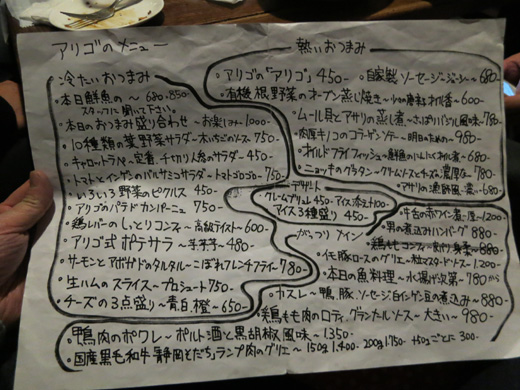 アリゴのメニュー
冷たいおつまみ
・本日鮮魚の 〜680.850
スタッフに聞いて下さい。
・本日のおつまみ盛り合わせ〜お楽しみ…1000
・10種類の葉野菜サラダー木いちごのソース 750
・キャロットラペ〜定番、千切り人参のサラダー450
・トマトとインゲンのバルサミコサラダートマトゴロゴロー750
・いろいろ野菜のピクルス 450
・アリゴのパテドカンパーニュ 750
・鶏レバーのしっとりコンフィ〜高級テイスト〜600
・アリゴ式ポテサラ〜芋芋芋〜480
・サーモンとアボガドのタルタルーこぼれフレンチフライー780
・生ハムのスライス〜プロシュート750
・チーズの3点盛り〜青.白.橙〜650
熱いおつまみ
・アリゴの「アリゴ」450
・自家製ソーセージージューシー〜680
・有機根野菜のオーブン蒸し焼き〜600
・ムール貝とアサリの蒸し煮〜さっぱりバジル風味〜780
・肉厚キノコのコラーゲンソテー〜明日のための〜980
・オイルドフライフィッシュー680
・ニョッキのグラタン〜クリームソースとチーズの濃厚な〜780
・アサリの漁師風〜蒸〜680
デザート
・クレームブリュレ 450
アイス添え+100
アイス3種盛り 450
がっつりメイン
・牛舌の赤ワイン煮〜厚〜1200
・男の煮込みハンバーグ 880
・鶏ももコンフィー 880
・イモ豚ロースのグリエー粒マスタードソース〜1200
・本日の魚料理〜水揚げ次第〜780から
・カスレ〜鴨、豚、ソーセージ白インゲン豆の煮込み〜880
・鶏もも肉のロティ、グランメールソース〜大きい〜980
・鴨肉のポワレーポルト酒と黒胡椒風味〜1350
・国産黒毛和牛「静岡そだち」ランプ肉のグリエ〜150g 1.400 200g 1.750 +50gごとに 300